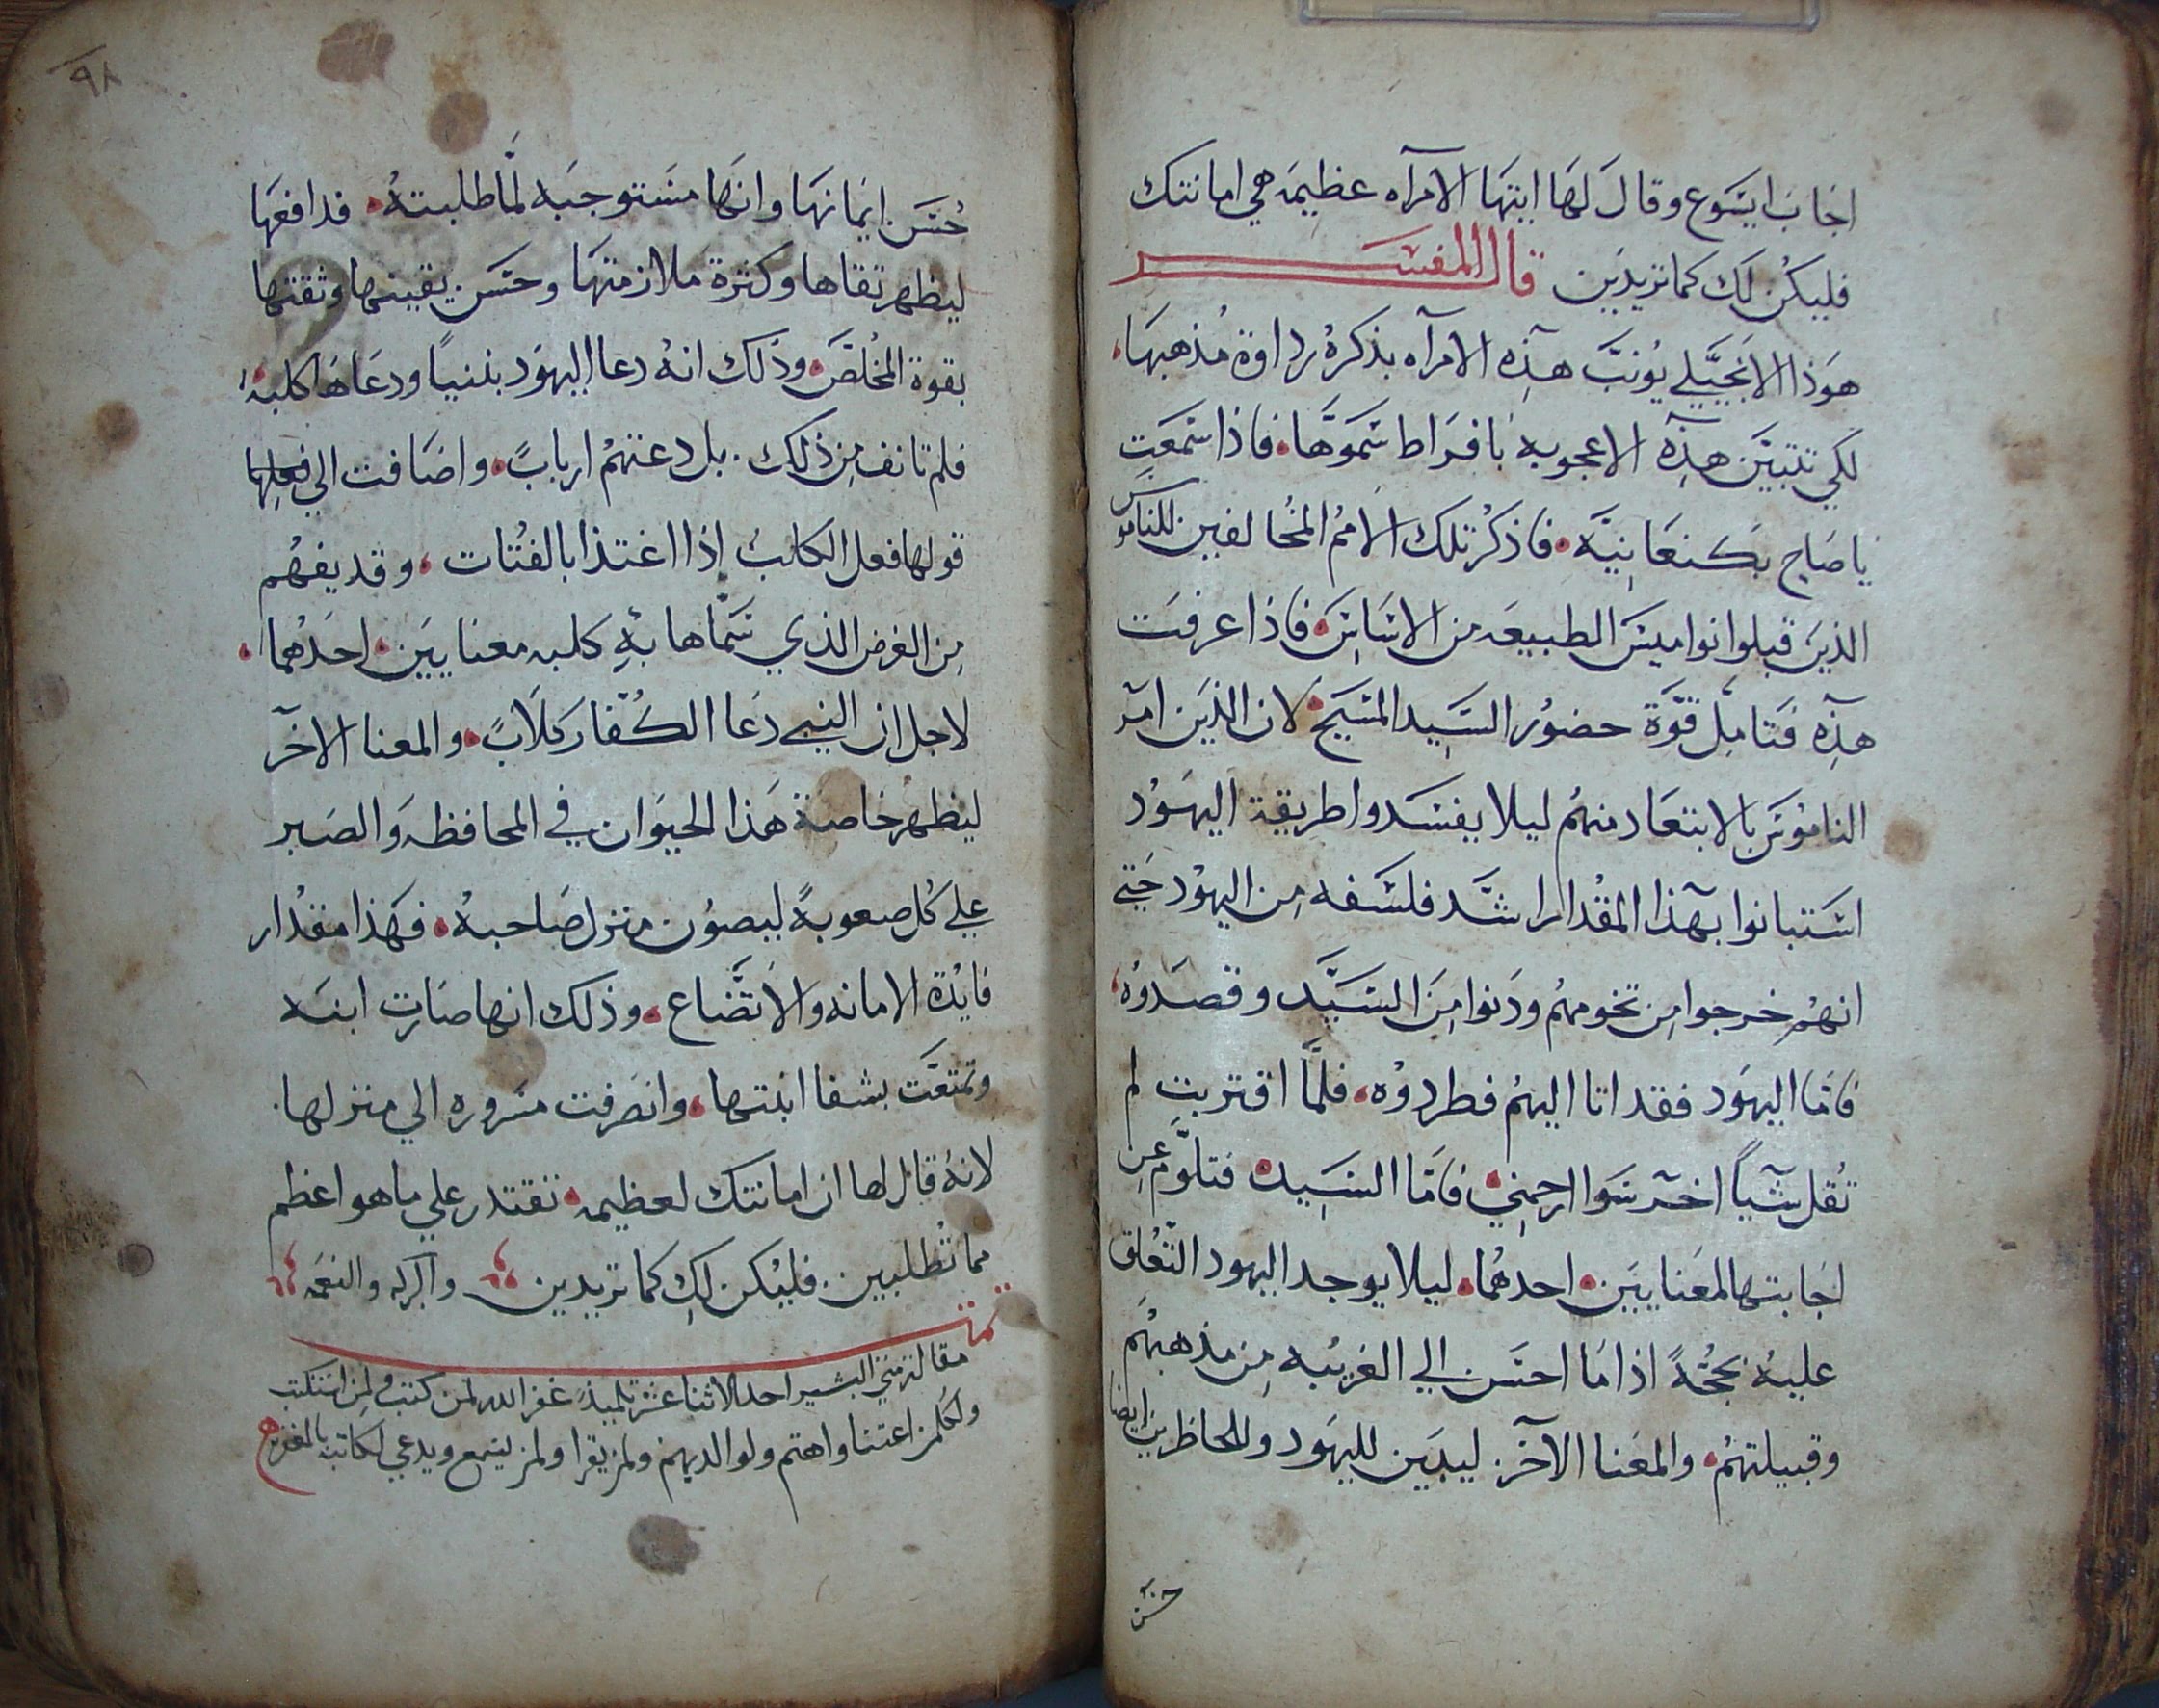 اجاب ايسوع وقال لها ايتها الامراه عظيمه هي امانتك
فليكن لك كما تريدين قال المفسر
هوذا الانجيلي يونب هذه الامراه بذكره رداوة مذهبها
لكي تتبين هذه الاعجوبه بافراط سموها فاذا سمعت
يا صاح بكنعانية فاذكر تلك الامم المخالفين للناموس
الذين قبلوا نواميس الطبيعه من الاساس فاذا عرفت
هذه فتامل قوة حضور السيد المسيح لان الذين امر
الناموس بالابتعاد منهم ليلا يفسدوا طريقة اليهود
استبانوا بهذا المقدار اشد فلسفه من اليهود حتي
انهم خرجوا من تخومهم ودنوا من السيد وقصدوه
فاما اليهود فقد اتا اليهم فطردوه فلما اقتربت لم
تقل شياً اخر سوا ارحمني فاما السيد فتلوم عن
اجابتها لمعنايين احدهما ليلا يوجد اليهود التعلق
عليه بحجةً اذا ما احسن الي الغريبه من مذهبهم
وقبيلتهم والمعنا الاخر ليبين لليهود وللحاظرين ايضا
حسن
٩٨
حسن ايمانها وانها مستوجبه لما طلبته فدافعها
ليظهر تقاها وكثرة ملازمتها وحسن يقينها وثقتها
بقوة المخلص وذلك انه دعا اليهود بنيناً ودعاها كلبه
فلم تانف من ذلك بل دعتهم ارباباً واضافت الي فعلها
قولها فعل الكلاب اذا اغتذا بالفتات وقد يفهم
من الغرض الذي سماها به كلبه معنايين احدهما
لاجل ان النبي دعا الكفار كلاباً والمعنا الاخر
ليظهر خاصة هذا الحيوان في المحافظه والصبر
علي كل صعوبةً ليصون منزل صاحبه فهذا مقدار
فايدة الامانه والاتضاع وذلك انها صارت ابنه
وتمتعت بشفا ابنتها وانصرفت مسروره الي منزلها
لانه قال لها ان امانتك لعظيمه تقتدر علي ما هو اعظم
مما تطلبين فليكن لك كما تريدين والبركه والنعمه
تمت
مقالة متي البشير احد الاثنا عشر تلميذ غفر الله لمن كتب ولمن استكتب
ولكلمن اعتنا واهتم ولوالديهم ولمن يقرا ولمن يسمع ويدعي لكاتبه بالمغفره